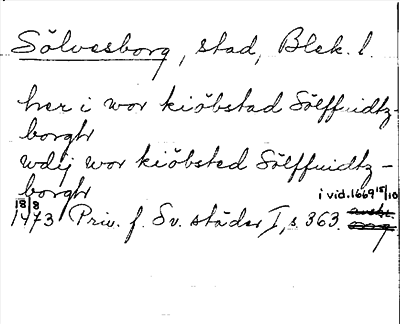 Sölvesborg, stad, Blek. l.
her i wor kiöbstad Sölffuidtz-
borgh
wdij wor kiöbsted Sölffuidtz-
borgh
i vid. 1669 15/10
18/8 1473 Priv. f. Sv. städer I, s. 363.